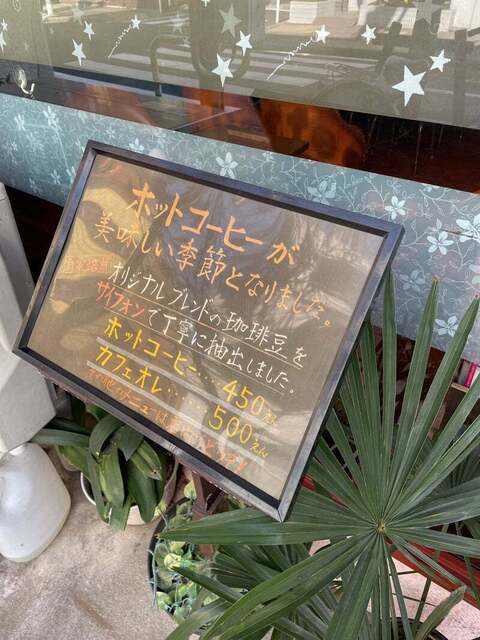 ホットコーヒーが
美味しい季節となりました。
オリジナルブレンドの珈琲豆を
サイフォンで丁寧に抽出しました。
ホットコーヒー・・・450えん
カフェオレ・・・・・・500えん